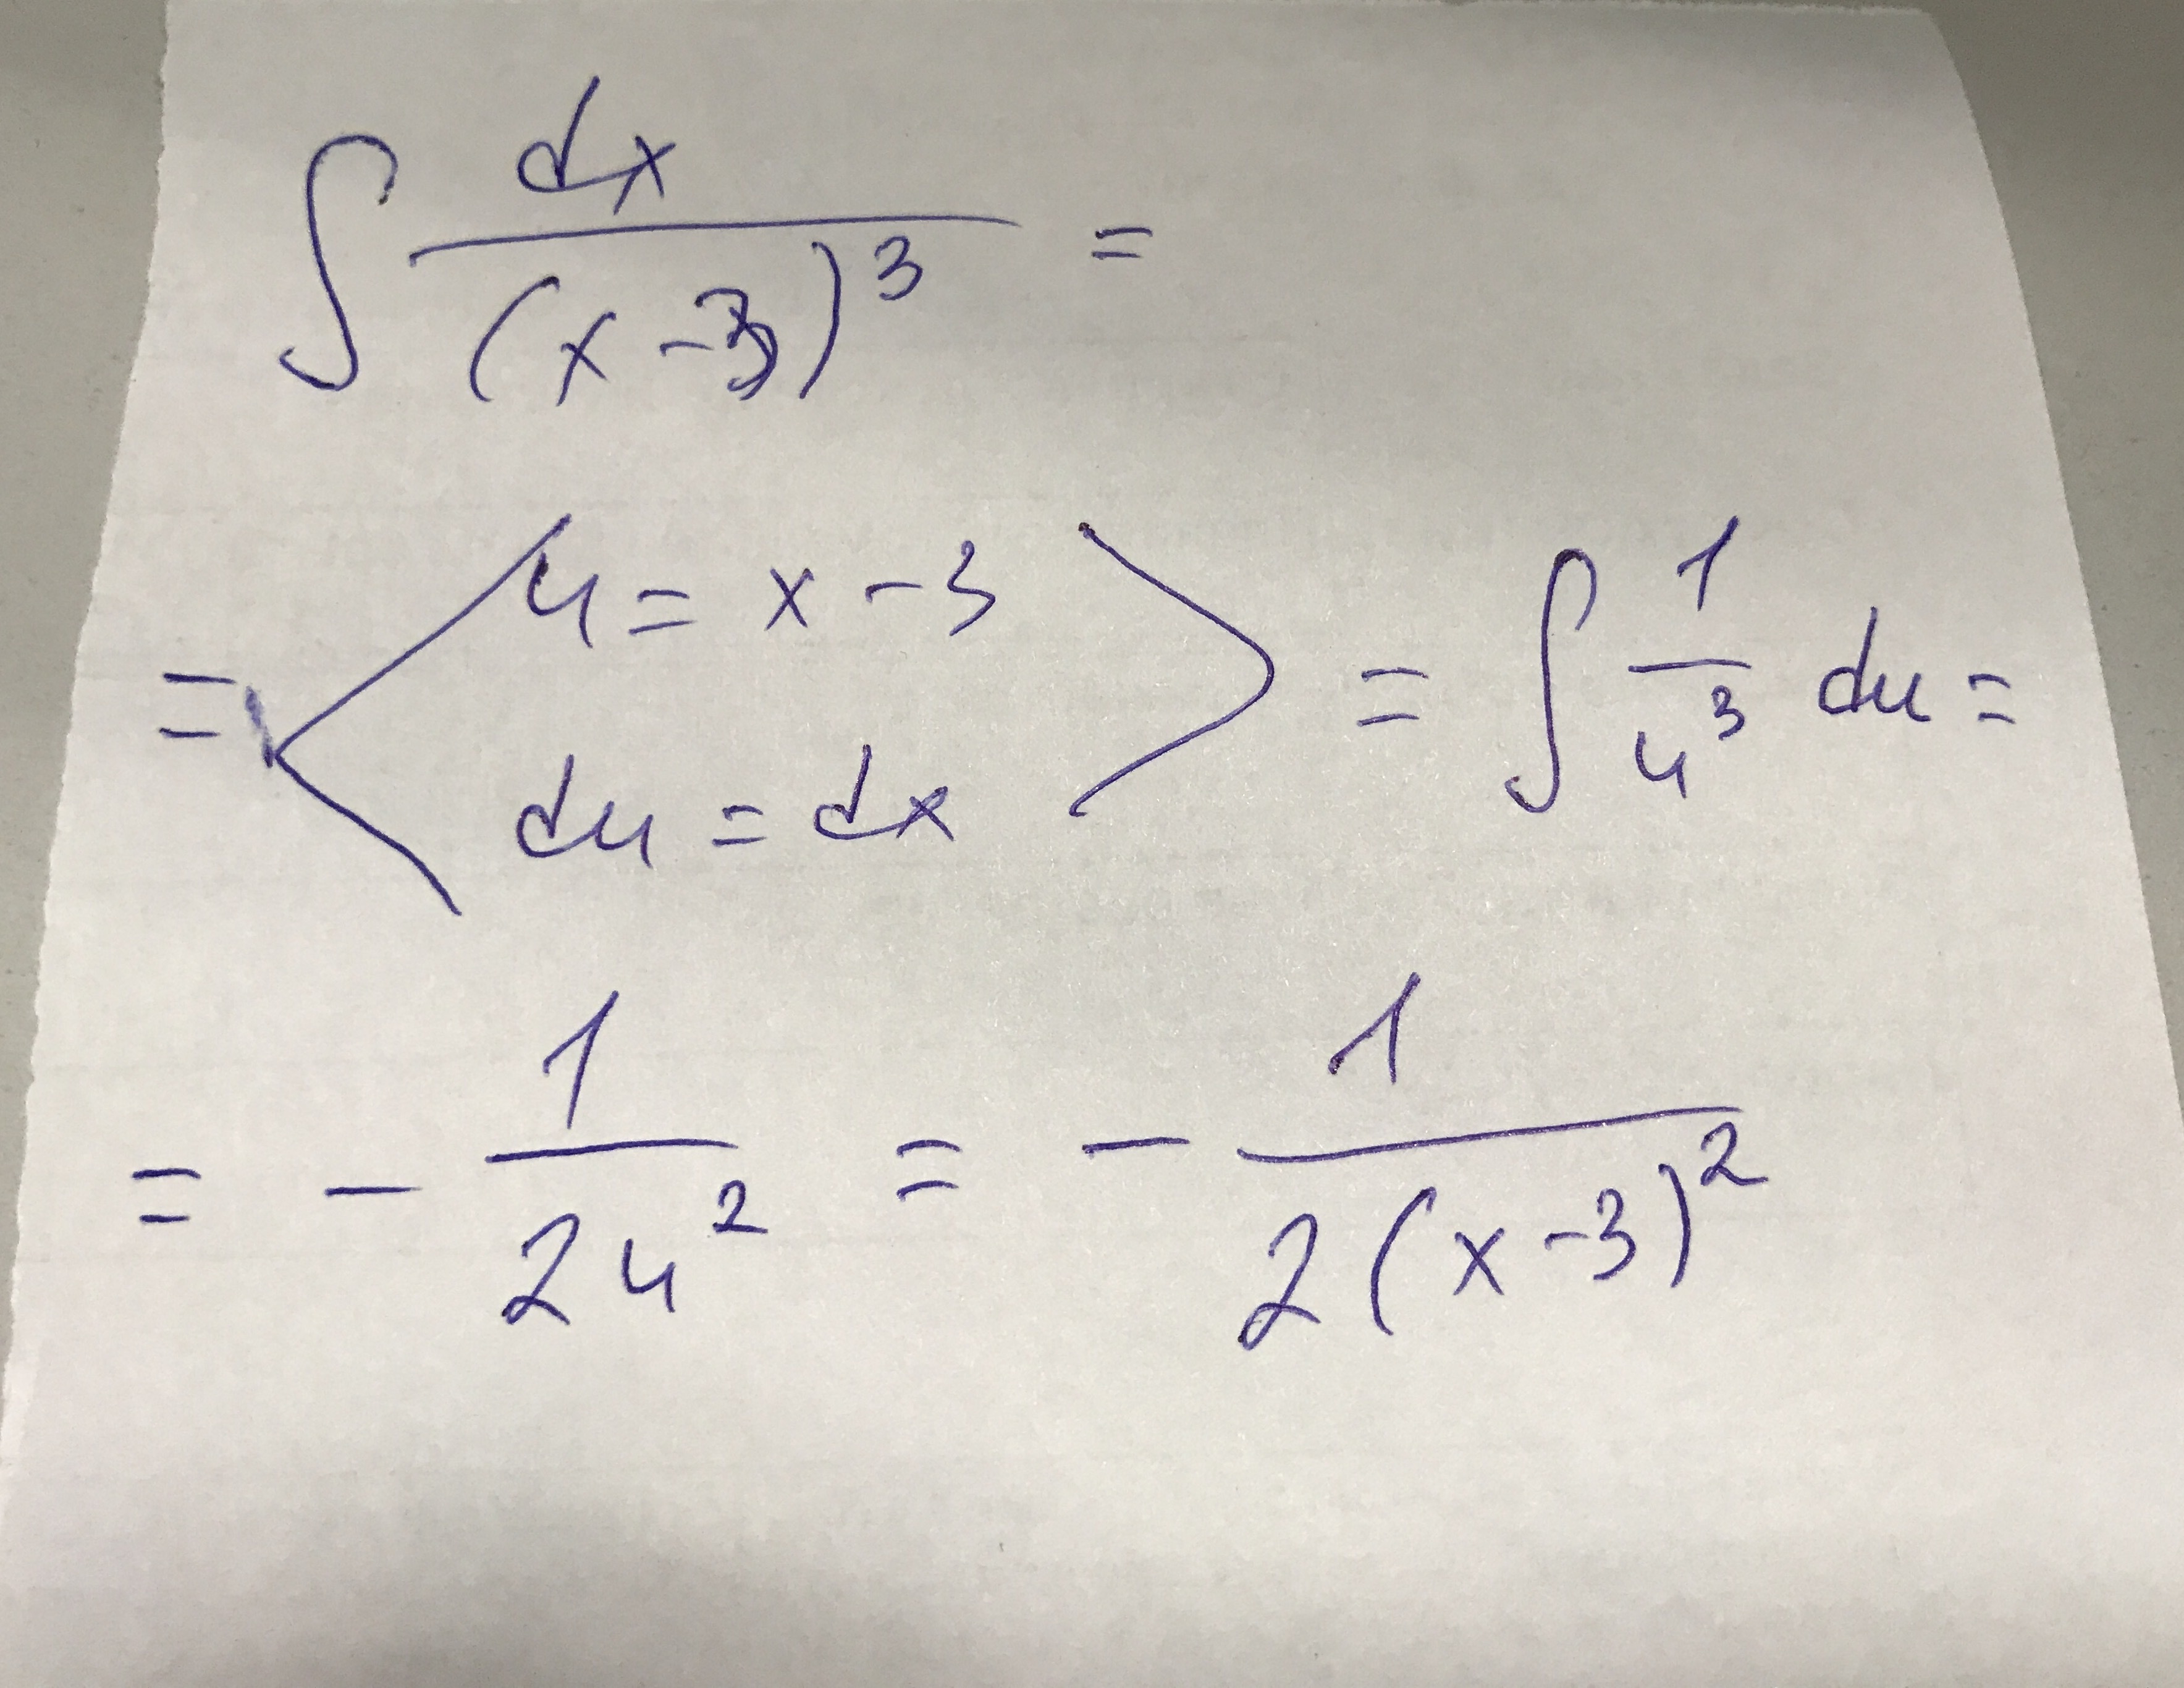 ∫ dx/(x-3)³ =
= < u = x-3
du = dx > = ∫ 1/u³ du =
= - 1/2u² = - 1/2(x-3)²